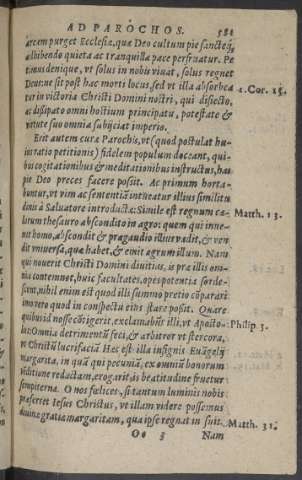 AD PAROCHOS. 581
arcem purget Ecclesiæ, quæ Deo cultum pie sanctéq́;
adhibendo quieta ac tranquilla pace perfruatur. Pe
timus denique, vt solus in nobis viuat, solus regnet
Deus: ne sit post hac morti locus, sed vt illa absorbea
tur in victoria Christi Domini nostri, qui disiecto,
ac dissipato omni hostium principatu, potestate &
virtute suo omnia subijciat imperio.
1. Cor. 15.
Erit autem curæ Parochis, vt (quod postulat hu
ius ratio petitionis) fidelem populum doceant, qui-
bus cogitationibus & meditationibus instructus, has
pie Deo preces facere possit. Ac primum horta-
buntur, vt vim ac sententiã intueatur illius similitu
dinis à Saluatore introductæ: Simile est regnum cæ
lorum thesauro abscondito in agro: quem qui inue-
nit homo, abscondit & præ gaudio illius vadit, & ven
dit vniuersa, quæ habet, & emit agrum illum. Nam
Matth. 13.
qui nouerit Christi Domini diuitias, is præ illis om-
nia contemnet, huic facultates, opes potentia sorde-
scent, nihil enim est quod illi summo pretio cõparari
imo vero quod in conspectu eius stare possit. Quare
quibus id nosse cõtigerit, exclamabũt illi, vt Aposto-
lus: Omnia detrimentũ feci, & arbitror vt stercora,
Philip. 3.
vt Christũ lucrifaciã. Hæc est illa insignis Euãgelij
margarita, in quã qui pecuniã, ex omniũ bonorum
vẽditione redactam, erogarit, is beatitudine fruetur
sempiterna. O nos fœlices, si tantum luminis nobis
præferret Iesus Christus, vt illam videre possemus
diuinæ gratiæ margaritam, qua ipse regnat in suis.
Matth. 31.
Oo 3 Nam